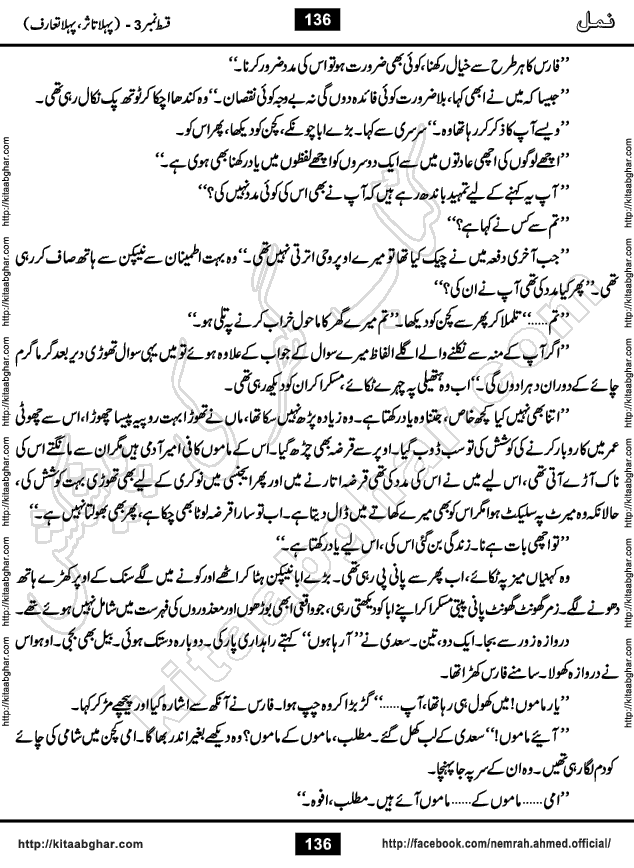 نمل
136
قسط نمبر 3 - (پہلا تاثر، پہلا تعارف)
’’فارس کا ہر طرح سے خیال رکھنا، کوئی بھی ضرورت ہو تو اس کی مدد ضرور کرنا۔‘‘
’’جیسا کہ میں نے ابھی کہا، بلا ضرورت کوئی فائدہ دوں گی نہ بے وجہ کوئی نقصان۔‘‘ وہ کندھا اچکا کر ٹوتھ پک نکال رہی تھی۔
’’ویسے آپ کا ذکر کر رہا تھا وہ۔‘‘ سرسری سے کہا۔ بڑے ابا چونکے، کچن کو دیکھا، پھر اس کو۔
’’اچھے لوگوں کی اچھی عادتوں میں سے ایک دوسروں کو اچھے لفظوں میں یاد رکھنا بھی ہوی ہے۔‘‘
’’آپ یہ کہنے کے لیے تمہید باندھ رہے ہیں کہ آپ نے بھی اس کی کوئی مدد نہیں کی؟‘‘
’’تم سے کس نے کہا ہے؟‘‘
’’جب آخری دفعہ میں نے چیک کیا تھا تو میرے اوپر وحی اترتی نہیں تھی۔‘‘ وہ بہت اطمینان سے نیپکن سے ہاتھ صاف کر رہی
تھی۔ ’’پھر کیا مدد کی تھی آپ نے ان کی؟‘‘
’’تم......‘‘ تلملا کر پھر سے کچن کو دیکھا۔ ’’تم میرے گھر کا ماحول خراب کرنے پہ تلی ہو۔‘‘
’’اگر آپ کے منہ سے نکلنے والے اگلے الفاظ میرے سوال کے جواب کے علاوہ ہوئے تو میں یہی سوال تھوڑی دیر بعد گرما گرم
چائے کے دوران دہرا دوں گی۔‘‘ اب وہ ہتھیلی پہ چہرے ٹکائے، مسکرا کر ان کو دیکھ رہی تھی۔
’’اتنا بھی نہیں کیا کچھ خاص، جتنا وہ یاد رکھتا ہے۔ وہ زیادہ پڑھ نہیں سکا تھا، ماں نے تھوڑا بہت روپیہ پیسا چھوڑا، اس سے چھوٹی
عمر میں کاروبار کرنے کی کوشش کی تو سب ڈوب گیا۔ اوپر سے قرضہ بھی چڑھ گیا۔ اس کے ماموں کافی امیر آدمی ہیں مگر ان سے مانگتے اس کی
ناک آڑے آتی تھی، اس لیے میں نے اس کی مدد کی تھی قرضہ اتارنے میں اور پھر ایجنسی میں نوکری کے لیے بھی تھوڑی بہت کوشش کی،
حالانکہ وہ میرٹ پہ سلیکٹ ہوا مگر اس کو بھی میرے کھاتے میں ڈال دیتا ہے۔ اب تو سارا قرضہ لوٹا بھی چکا ہے، پھر بھی بھولتا نہیں ہے۔‘‘
’’تو اچھی بات ہے نا۔ زندگی بن گئی اس کی، اس لیے یاد رکھتا ہے۔‘‘
وہ کہنیاں میز پہ ٹکائے، اب پھر سے پانی پی رہی تھی۔ بڑے ابا نیپکن ہٹا کر اٹھے اور کونے میں لگے سنک کے اوپر کھڑے ہاتھ
دھونے لگے۔ زمر گھونٹ گھونٹ پانی پیتی مسکرا کر اپنے ابا کو دیکھتی رہی، جو واقعی ابھی بوڑھوں اور معذوروں کی فہرست میں شامل نہیں ہوئے تھے۔
دروازہ زور سے بجا۔ ایک دو، تین۔ سعدی نے ’’آ رہا ہوں‘‘ کہتے راہداری پار کی۔ دوبارہ دستک ہوئی۔ بیل بھی بجی۔ اوہو اس
نے دروازہ کھولا۔ سامنے فارس کھڑا تھا۔
’’یار ماموں! میں کھول ہی رہا تھا، آپ......‘‘ گڑبڑا کر وہ چپ ہوا۔ فارس نے آنکھ سے اشارہ کیا اور پیچھے مڑ کر کہا۔
’’آیئے ماموں!‘‘ سعدی کے لب کھل گئے۔ مطلب، ماموں کے ماموں؟ وہ دیکھے بغیر اندر بھاگا۔ امی کچن میں شامی کی چائے
کو دم لگا رہی تھیں۔ وہ ان کے سر پہ جا پہنچا۔
’’امی...... ماموں کے...... ماموں آئے ہیں۔ مطلب، افوہ۔‘‘
http://kitaabghar.com
http://kitaabghar.com
http://kitaabghar.com
http://kitaabghar.com
http://kitaabghar.com
http://kitaabghar.com
http://kitaabghar.com
http://kitaabghar.com
http://kitaabghar.com
http://kitaabghar.com
http://kitaabghar.com
http://kitaabghar.com
کتاب گھر کی پیشکش
kitaabghar.com
http://kitaabghar.com
136
http://facebook.com/nemrah.ahmed.official/